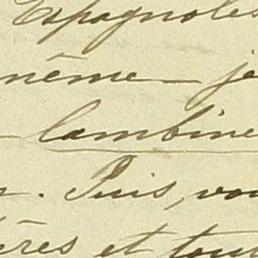 Espagnoles
même — je
— lambine
. Puis, vou
ères et tout